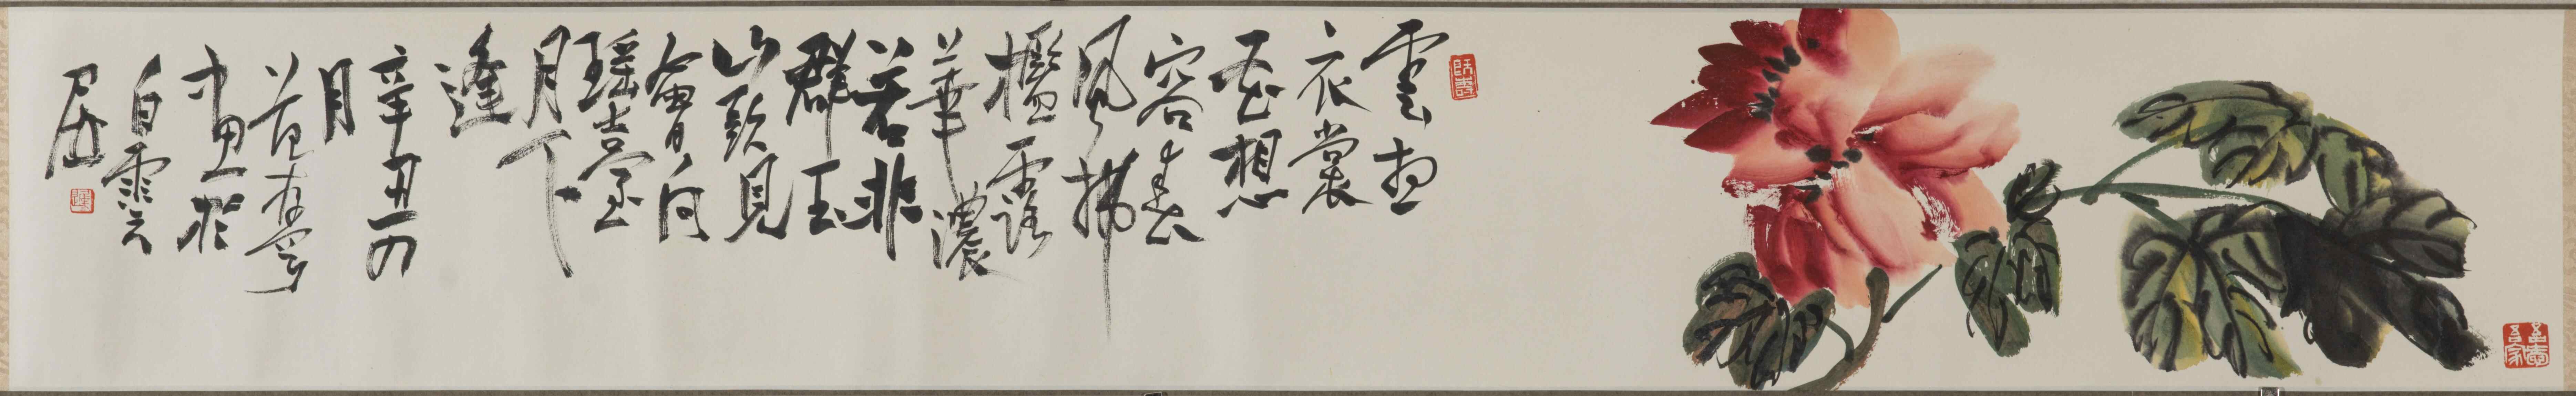 雲想
衣裳
花想
容春
風拂
檻露
華濃
若非
群玉
山頭見
會向
瑤臺
月下
逢
辛丑四
月
画於
白雲
居